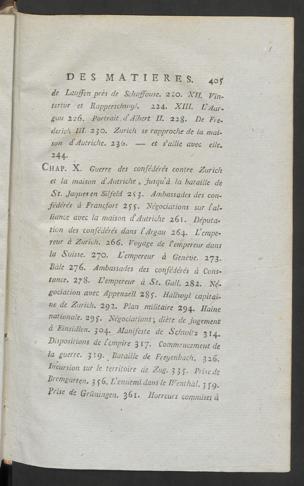 DES MATIERES. 405
de Lauffen près de Schaffouse. 220. XII. Vin-
tertur et Rapperschuyl. 224. XIII. L'Aar-
gau 226. Portrait d'Albert II. 228. De Fre-
derich III. 230. Zurich se rapproche de la mai-
son d'Autriche. 236. — et s'allie avec elle.
244.
CHAP. X. Guerre des confédérés contre Zurich
et la maison d'Autriche, jusqu'à la bataille de
St. Jaques en Silfeld 253. Ambassades des con-
fédérés à Francfort 255. Négociations sur l'al-
liance avec la maison d'Autriche 261. Députa-
tion des confédérés dans l'Argau 264. L'empe-
reur à Zurich. 266. Voyage de l'empereur dans
la Suisse. 270. L'empereur à Genève. 273.
Bâle 276. Ambassades des confédérés à Cons-
tance. 278. L'empereur à St. Gall. 282. Né-
gociation avec Appenzell 285. Hallwyl capitai-
ne de Zurich. 292. Plan militaire 294. Haine
nationale. 295. Négociations; diète de jugement
à Einsidlen. 304. Manifeste de Schwitz 314.
Dispositions de l'empire 317. Commencement de
la guerre. 319. Bataille de Freyenbach. 326.
Incursion sur le territoire de Zug. 335. Prise de
Bremgarten. 356. L'ennemi dans le Wenthal. 359.
Prise de Grüningen. 361. Horreurs commises à